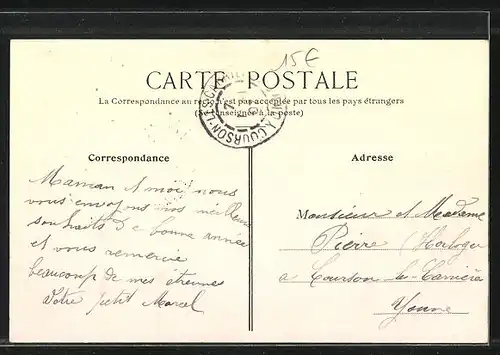 15E
CARTE POSTALE
La Correspondance au recto n'est pas acceptée par tous les pays étrangers
(Se renseigner à la poste)
Correspondance
Maman et moi nous
vous envoyons nos meilleurs
souhaits de bonne année
et vous remercie
beaucoup de mes étrennes
Votre petit Marcel
Adresse
Monsieur et Madame
Pierre (Horloger
a Courson les Carrières
Yonne